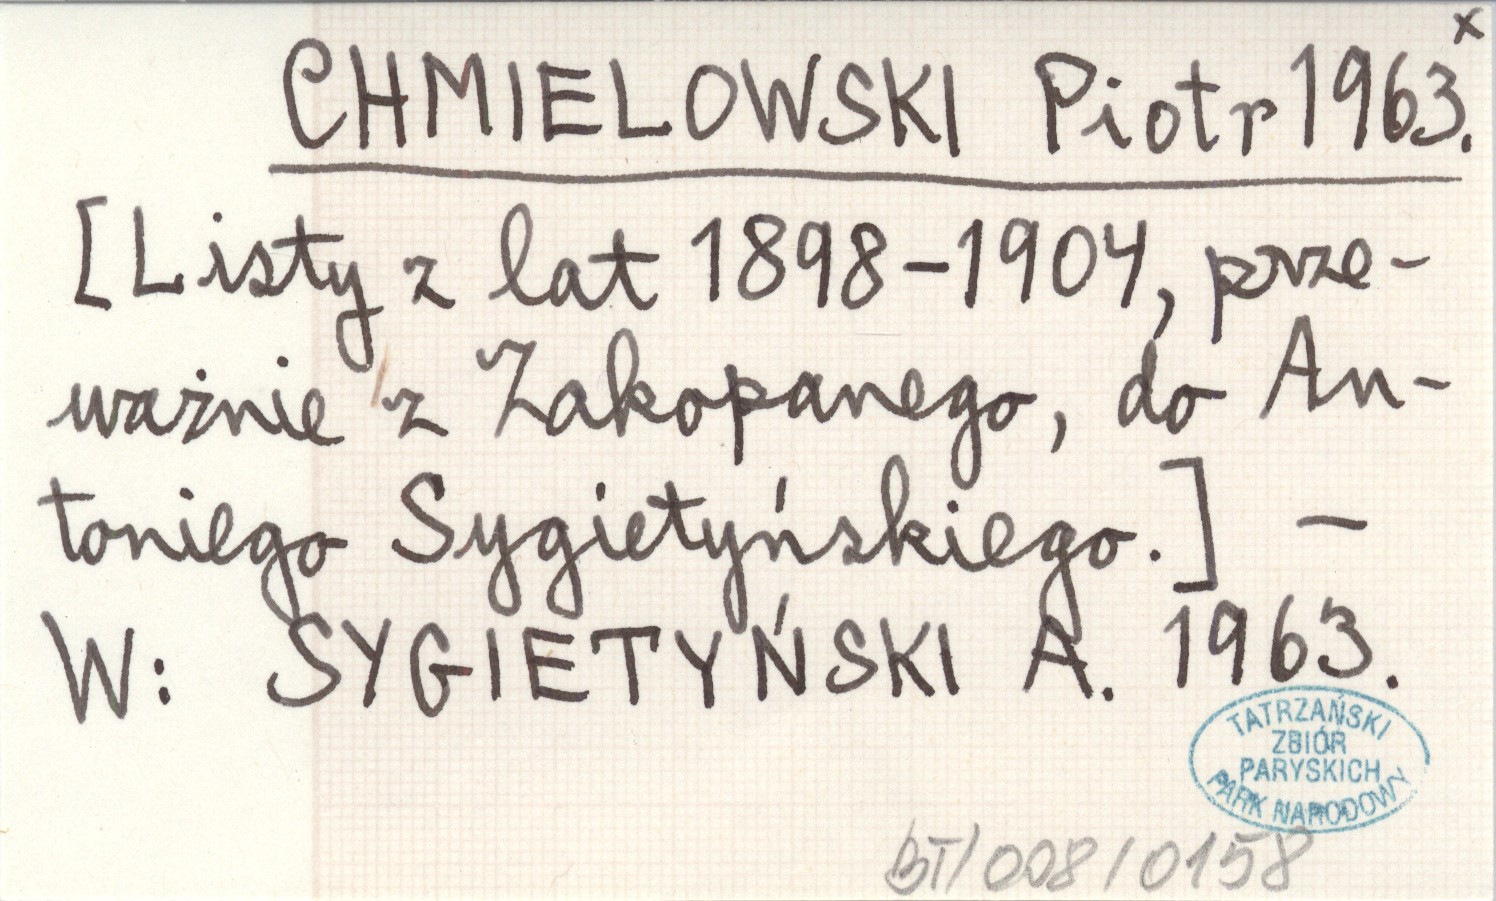 x
CHMIELOWSKI Piotr 1963.
[Listy z lat 1898-1904, prze-
ważnie z Zakopanego, do An-
toniego Sygietyńskiego.] —
W: SYGIETYŃSKI A. 1963.
TATRZAŃSKI
ZBIÓR
PARYSKICH
PARK NARODOWY
BT/008/0158